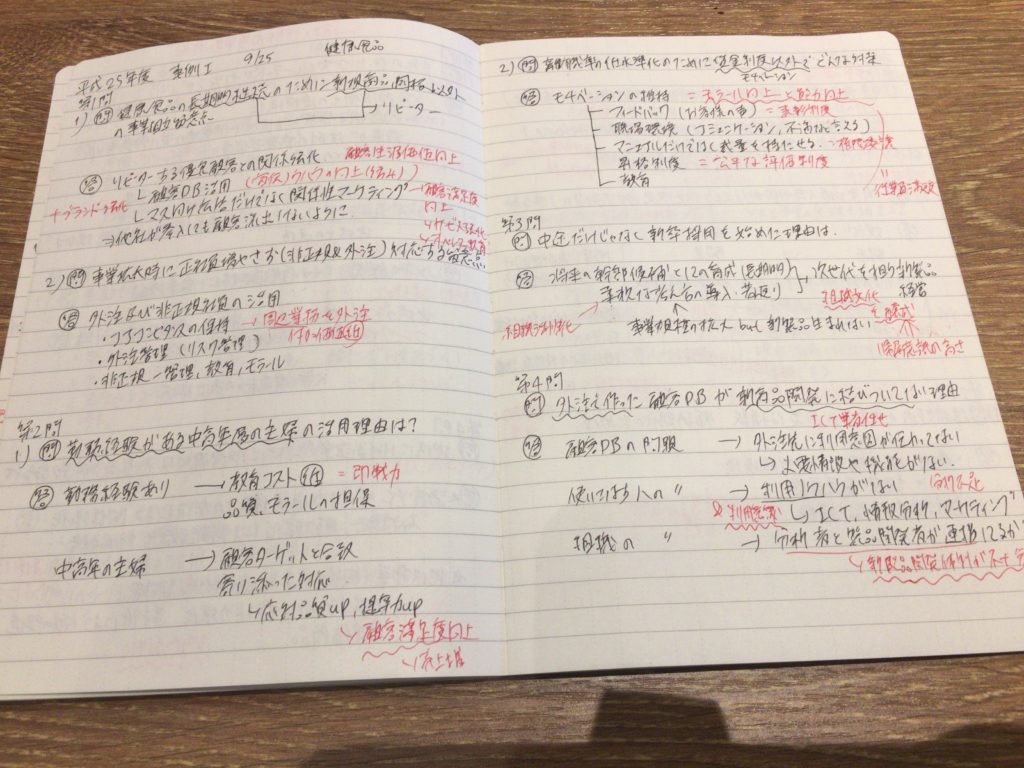 平成25年度 事例I 9/25 健康食品
第1問
1) 問 健康食品の長期間継続のために新規商品開拓以外
の事業組立留意点
リピーター
答 リピーターする優良顧客との関係強化 顧客生涯価値向上
顧客DB活用
+ブランド強化
マス向け伝達だけでなく関係性マーケティング
顧客満足度
向上
⇒他社が参入しても顧客流出しないように
2) 問 事業拡大時に正社員増やさず(非正規&外注)対応する留意点
答 外注及び非正規社員の活用
・コアコンピタンスの維持 → 周辺業務を外注
付加価値低
・外注管理(リスク管理)
・非正規 ー管理、教育、モラール
第2問
1) 問 勤務経験がある中高年層の主婦の活用理由は?
答 勤務経験あり → 教育コスト低 = 即戦力
品質、モラールの担保
中高年の主婦 → 顧客ターゲットと合致
寄り添った対応
↳応対品質up、提案力up
↳顧客満足度向上
↳売上増
2) 問 離職率の低水準化のために賃金制度以外でどんな対策
モチベーション
答 モチベーションの維持 = モラール向上と能力向上
フィードバック(お客様の声) = 表彰制度
職場環境(コミュニケーション、不満など言える)
マニュアルだけではなく裁量を持たせる = 権限委譲
昇格制度 = 公平な評価制度
教育
第3問
問 中途だけじゃなく新卒採用を始めた理由は、
答 将来の幹部候補としての育成(長期間) 次世代を担う新製品
経営
柔軟な考え方の導入・若返り
組織文化
を醸成
組織活性化
事業規模の拡大 but 新製品生まれない
帰属意識の高さ
第4問
問 外注で作った顧客DBが新商品開発に結びついてない理由
ICT業者任せ
答 顧客DBの問題 → 外注先に利用意図が伝わってない
↳必要情報や機能がない。
使いこなす人の 〃 → 利用ノウハウがない
& 利用意識 ↳ICT、情報分析、マーケティング
組織の 〃 → 分析者と製品開発者が連携してるか
↳新製品開発体制が不十分